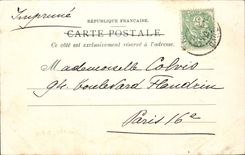 Imprimé
RÉPUBLIQUE FRANÇAISE
CARTE POSTALE
Ce côté est exclusivement réservé à l'adresse.
Mademoiselle Colvis
94 boulevard Flandrin
Paris 16e